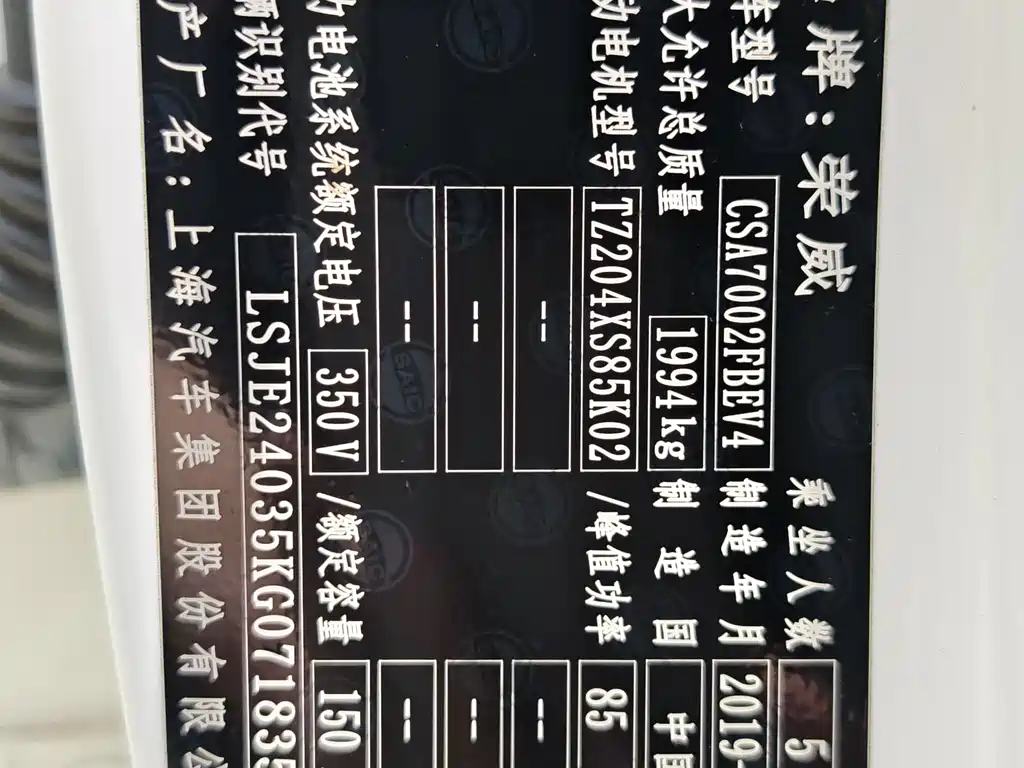 牌：荣威
乘坐人数 5
车型号 CSA7002FBEV4 制造年月 2019-
大允许总质量 1994kg 制造国 中国
动电机型号 TZ204XS85K02 /峰值功率 85
-- --
-- --
-- --
力电池系统额定电压 350V /额定容量 150
辆识别代号 LSJE24035KG071835
产厂名：上海汽车集团股份有限公
SAIC
SAIC